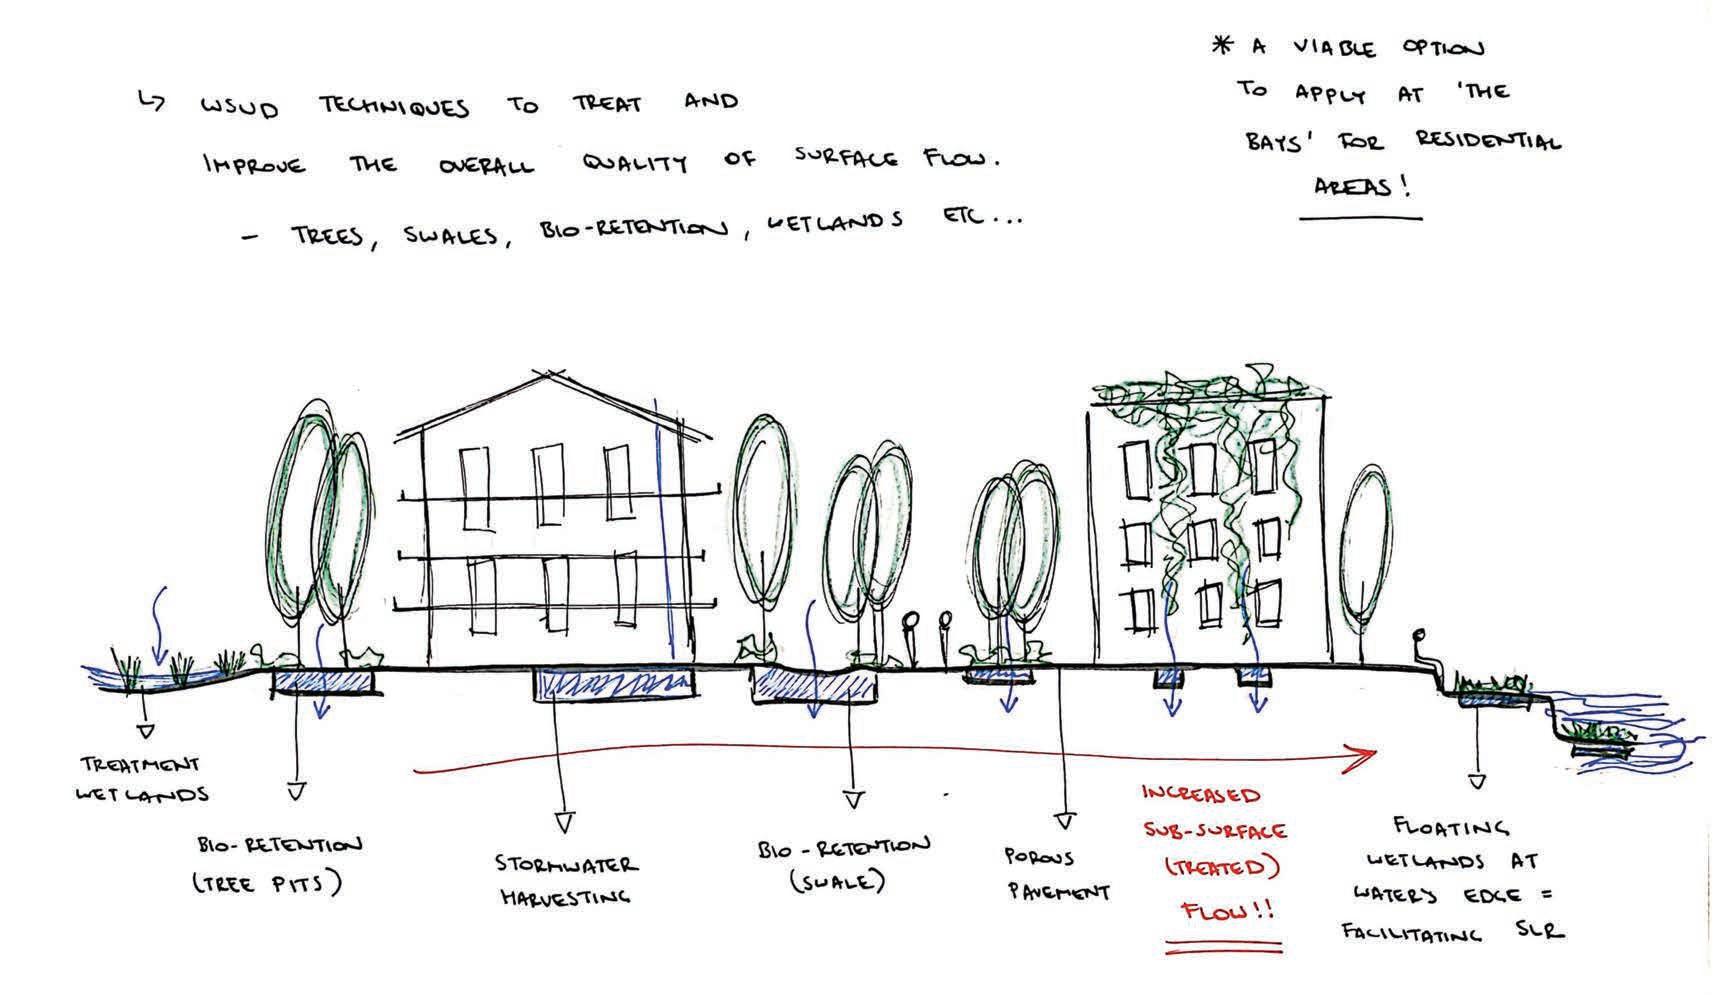 ↳ WSUD TECHNIQUES TO TREAT AND
IMPROVE THE OVERALL QUALITY OF SURFACE FLOW.
- TREES, SWALES, BIO-RETENTION, WETLANDS ETC...
* A VIABLE OPTION
TO APPLY AT 'THE
BAYS' FOR RESIDENTIAL
AREAS!
TREATMENT
WETLANDS
BIO-RETENTION
(TREE PITS)
STORMWATER
HARVESTING
BIO-RETENTION
(SWALE)
POROUS
PAVEMENT
INCREASED
SUB-SURFACE
(TREATED)
FLOW!!
FLOATING
WETLANDS AT
WATERS EDGE =
FACILITATING SLR